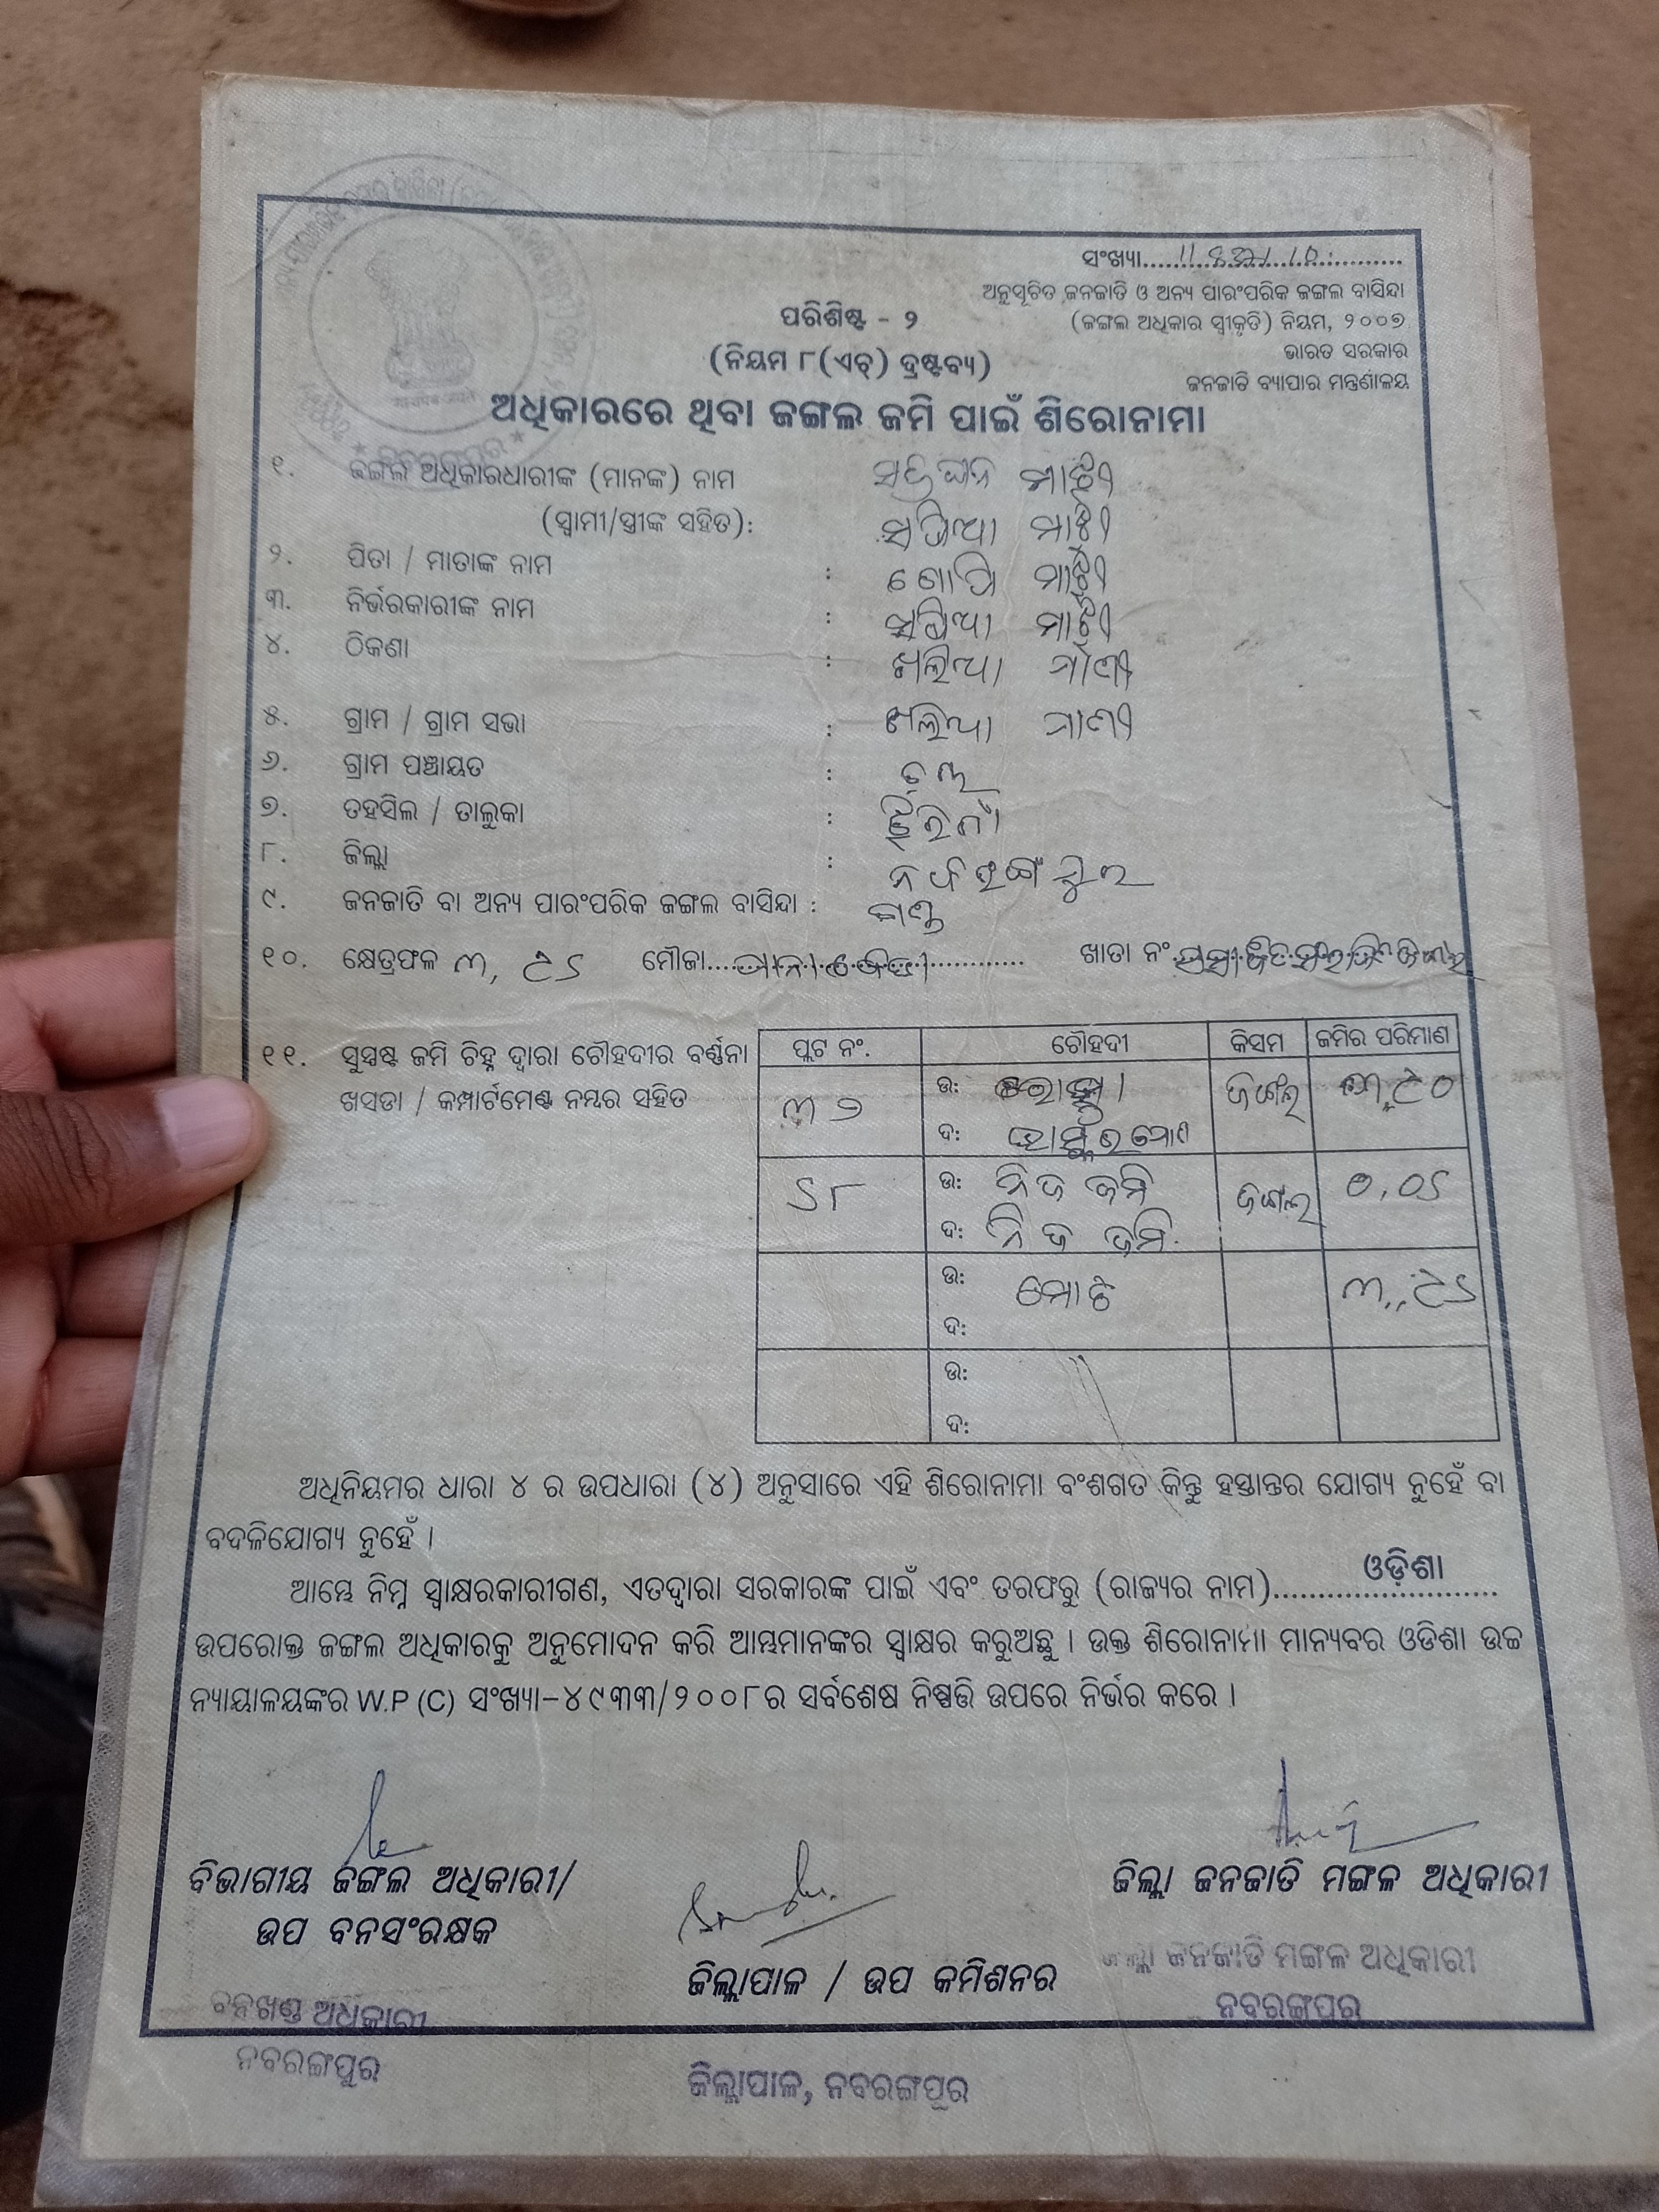 ସଂଖ୍ୟା
ଅନୁସୂଚିତ ଜନଜାତି ଓ ଅନ୍ୟ ପାରଂପରିକ ଜଙ୍ଗଲ ବାସିନ୍ଦା
(ଜଙ୍ଗଲ ଅଧିକାର ସ୍ୱୀକୃତି) ନିୟମ, ୨୦୦୭
ଭାରତ ସରକାର
ଜନଜାତି ବ୍ୟାପାର ମନ୍ତ୍ରଣାଳୟ
ପରିଶିଷ୍ଟ - ୨
(ନିୟମ ୮(ଏଚ୍) ଦ୍ରଷ୍ଟବ୍ୟ)
ଅଧିକାରରେ ଥିବା ଜଙ୍ଗଲ ଜମି ପାଇଁ ଶିରୋନାମା
୧. ଜଙ୍ଗଲ ଅଧିକାରଧାରୀଙ୍କ (ମାନଙ୍କ) ନାମ ମାଝୀ
(ସ୍ୱାମୀ/ସ୍ତ୍ରୀଙ୍କ ସହିତ): ମାଝୀ
୨. ପିତା / ମାତାଙ୍କ ନାମ : ମାଝୀ
୩. ନିର୍ଭରକାରୀଙ୍କ ନାମ : ମାଝୀ
୪. ଠିକଣା :
୫. ଗ୍ରାମ / ଗ୍ରାମ ସଭା :
୬. ଗ୍ରାମ ପଞ୍ଚାୟତ :
୭. ତହସିଲ / ତାଲୁକା :
୮. ଜିଲ୍ଲା : ନବରଙ୍ଗପୁର
୯. ଜନଜାତି ବା ଅନ୍ୟ ପାରଂପରିକ ଜଙ୍ଗଲ ବାସିନ୍ଦା : ଗଣ୍ଡ
୧୦. କ୍ଷେତ୍ରଫଳ ୩, ୯୪ ମୌଜା ଖାତା ନଂ
୧୧. ସୁସ୍ପଷ୍ଟ ଜମି ଚିହ୍ନ ଦ୍ୱାରା ଚୌହଦୀର ବର୍ଣ୍ଣନା
ଖସଡା / କମ୍ପାର୍ଟମେଣ୍ଟ ନମ୍ବର ସହିତ
ପ୍ଲଟ ନଂ. ଚୌହଦୀ କିସମ ଜମିର ପରିମାଣ
୩୨ ଉ: ଜଙ୍ଗଲ ୩,୯୦
ଦ:
୪୮ ଉ: ନିଜ ଜମି ଜଙ୍ଗଲ ୦,୦୪
ଦ: ନିଜ ଜମି
ଉ: ମୋଟ ୩,୯୪
ଦ:
ଉ:
ଦ:
ଅଧିନିୟମର ଧାରା ୪ ର ଉପଧାରା (୪) ଅନୁସାରେ ଏହି ଶିରୋନାମା ବଂଶଗତ କିନ୍ତୁ ହସ୍ତାନ୍ତର ଯୋଗ୍ୟ ନୁହେଁ ବା
ବଦଳିଯୋଗ୍ୟ ନୁହେଁ ।
ଆମ୍ଭେ ନିମ୍ନ ସ୍ୱାକ୍ଷରକାରୀଗଣ, ଏତଦ୍ୱାରା ସରକାରଙ୍କ ପାଇଁ ଏବଂ ତରଫରୁ (ରାଜ୍ୟର ନାମ) ଓଡ଼ିଶା
ଉପରୋକ୍ତ ଜଙ୍ଗଲ ଅଧିକାରକୁ ଅନୁମୋଦନ କରି ଆମ୍ଭମାନଙ୍କର ସ୍ୱାକ୍ଷର କରୁଅଛୁ । ଉକ୍ତ ଶିରୋନାମା ମାନ୍ୟବର ଓଡିଶା ଉଚ୍ଚ
ନ୍ୟାୟାଳୟଙ୍କର W.P (C) ସଂଖ୍ୟା-୪୯୩୩/୨୦୦୮ର ସର୍ବଶେଷ ନିଷ୍ପତ୍ତି ଉପରେ ନିର୍ଭର କରେ ।
ବିଭାଗୀୟ ଜଙ୍ଗଲ ଅଧିକାରୀ/
ଉପ ବନସଂରକ୍ଷକ
ଜିଲ୍ଲାପାଳ / ଉପ କମିଶନର
ଜିଲ୍ଲା ଜନଜାତି ମଙ୍ଗଳ ଅଧିକାରୀ
ଜିଲ୍ଲା ଜନଜାତି ମଙ୍ଗଳ ଅଧିକାରୀ
ନବରଙ୍ଗପୁର
ବନଖଣ୍ଡ ଅଧିକାରୀ
ନବରଙ୍ଗପୁର
ଜିଲ୍ଲାପାଳ, ନବରଙ୍ଗପୁର